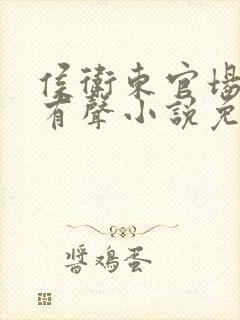 侯衛東官場
有聲小說免
醬鸡蛋